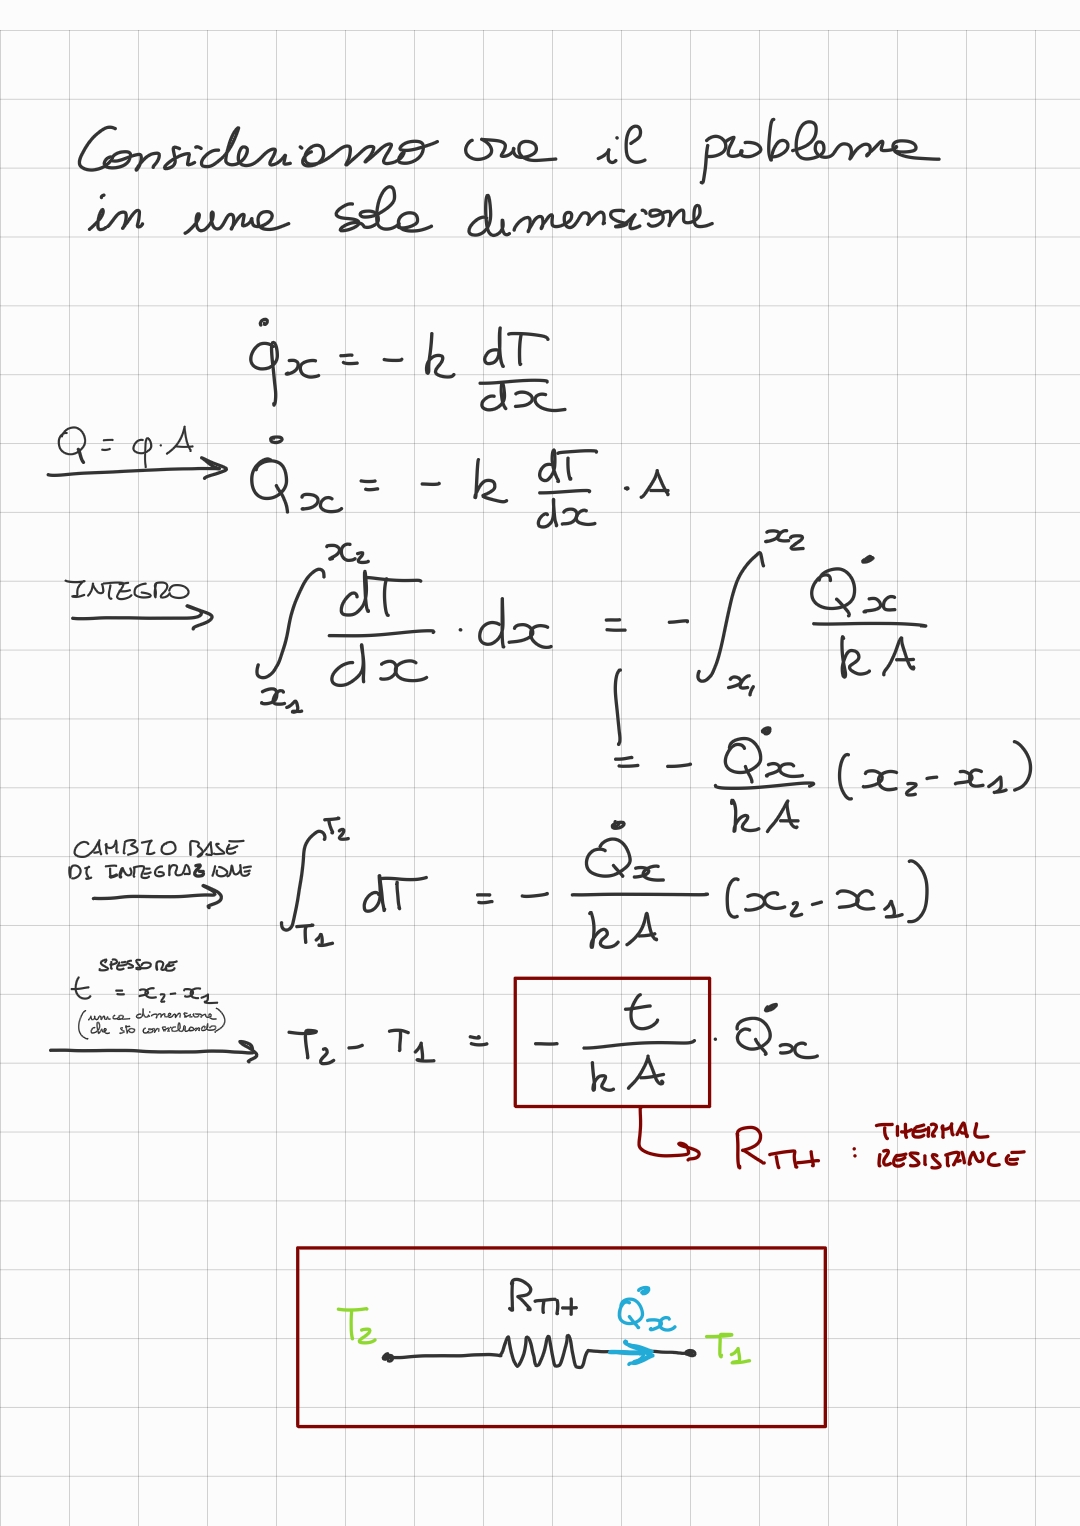 Consideriamo ora il problema
in una sola dimensione
q̇x = - k dT/dx
Q = q · A
Q̇x = - k dT/dx · A
INTEGRO
∫x1^x2 dT/dx · dx = - ∫x1^x2 Q̇x/kA
= - Q̇x/kA (x2 - x1)
CAMBIO BASE
DI INTEGRAZIONE
∫T1^T2 dT = - Q̇x/kA (x2 - x1)
SPESSORE
t = x2 - x1
(unica dimensione
che sto considerando)
T2 - T1 = - t/kA · Q̇x
RTH : THERMAL
RESISTANCE
T2 RTH Q̇x T1